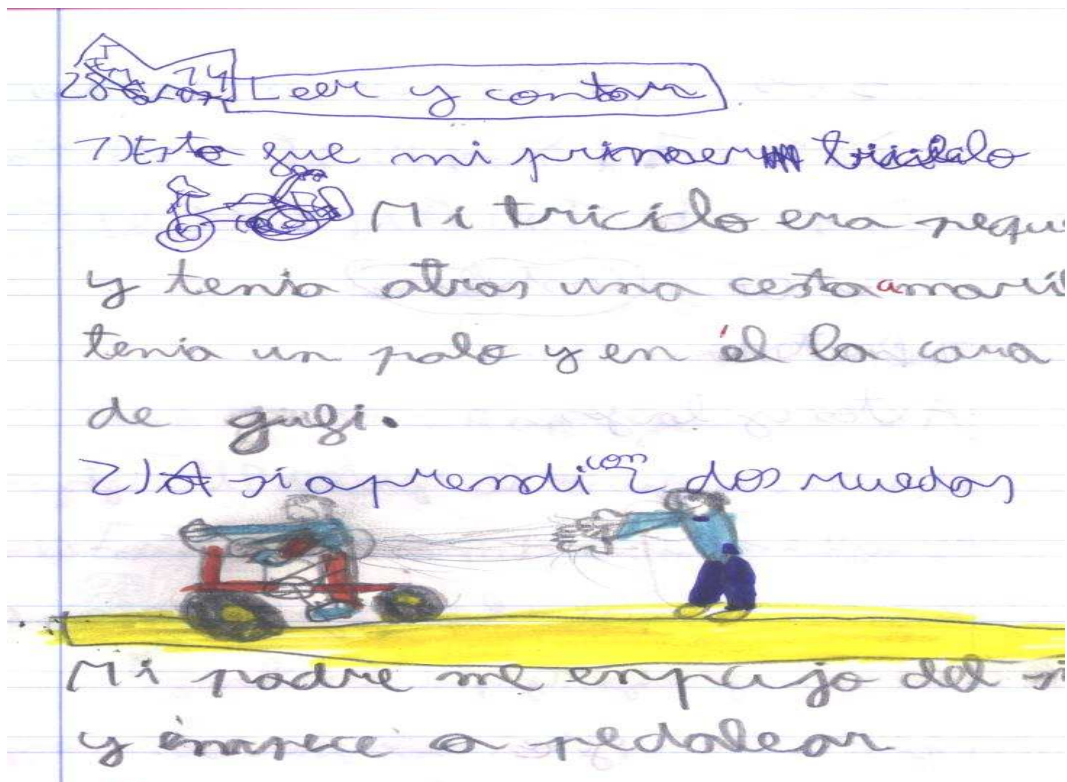 28 Leer y contar
1) Este fue mi primer triciclo
Mi triciclo era pequ
y tenia atras una cesta amaril
tenia un palo y en él la cara
de gugi.
2) A si aprendi con 2 dos ruedas
Mi padre me enpujo del si
y enpece a pedalear